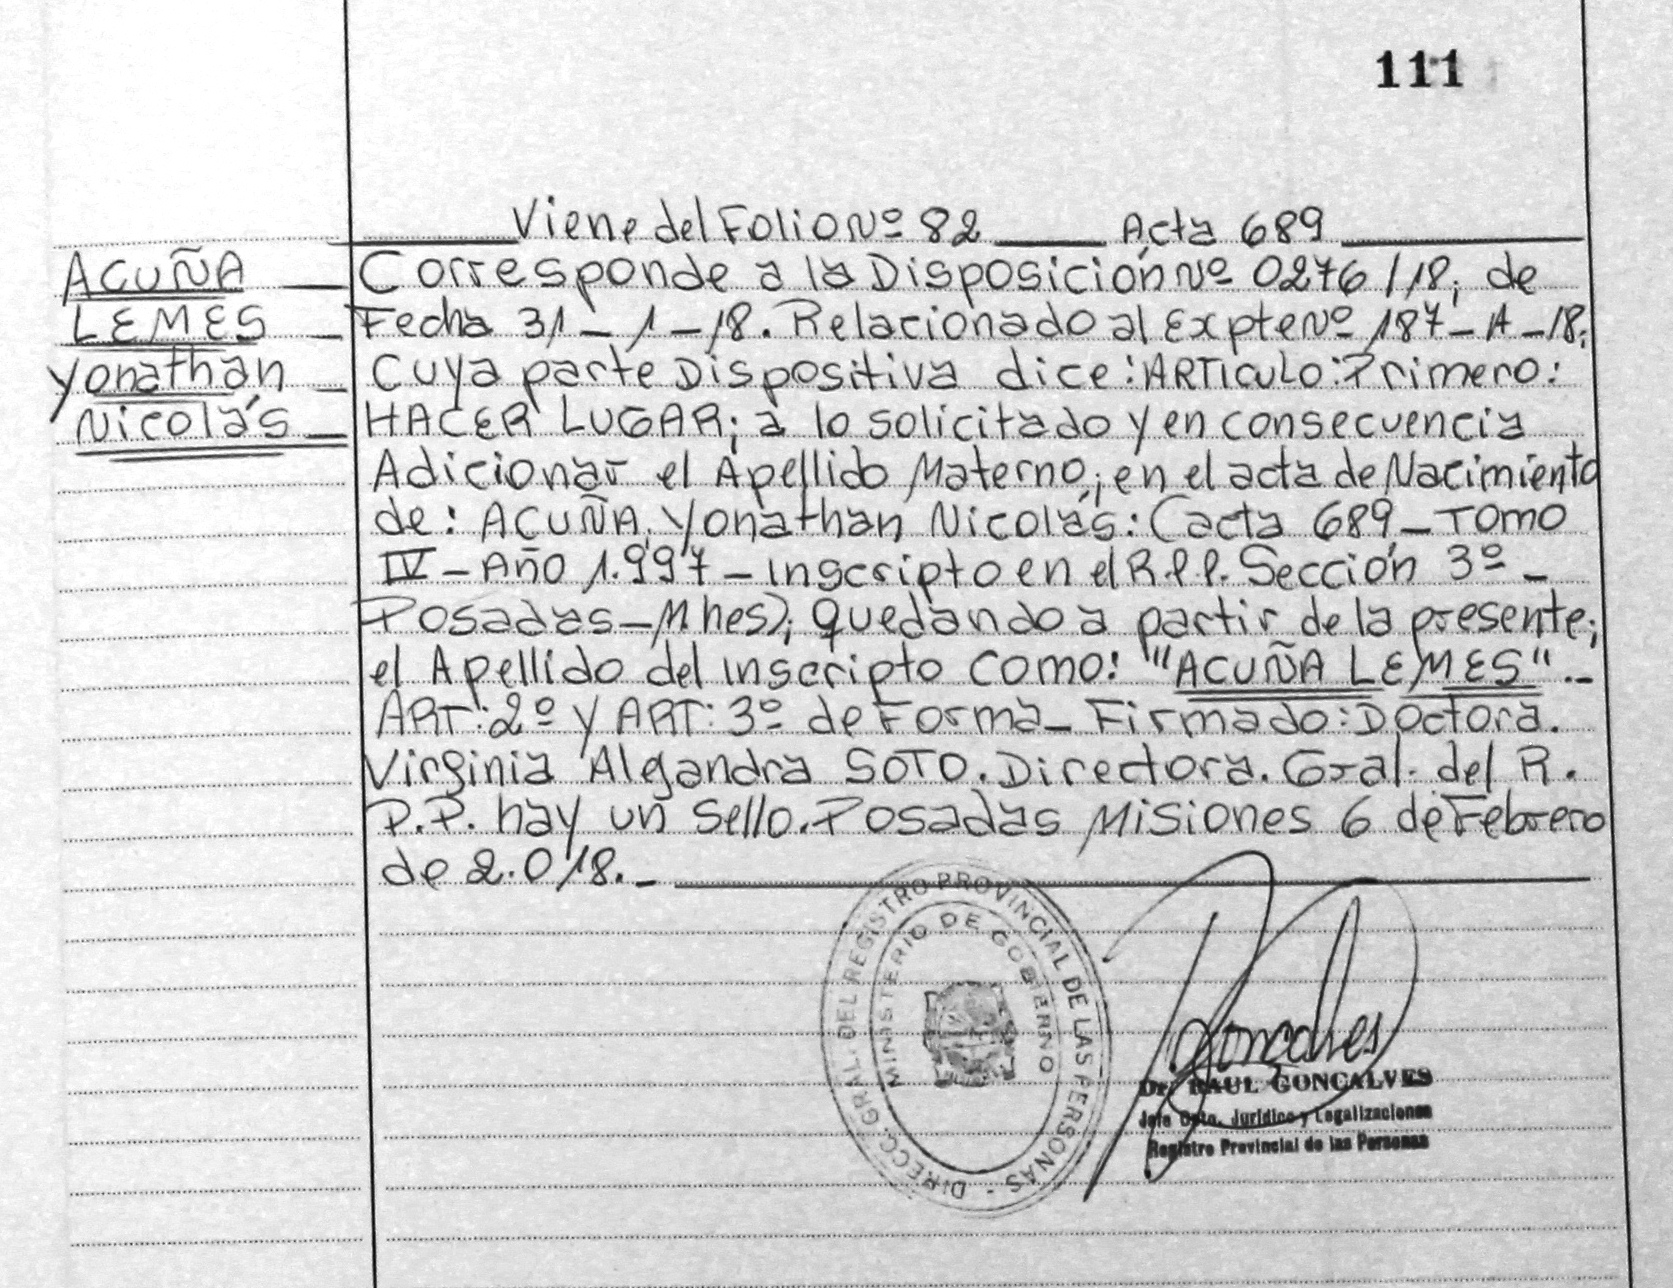 111
Viene del Folio Nº 82 Acta 689
ACUÑA
LEMES
Yonathan
Nicolás
Corresponde a la Disposición Nº 0276/18; de
Fecha 31-1-18. Relacionado al Expte Nº 187-A-18;
Cuya parte Dispositiva dice: ARTICULO: Primero:
HACER LUGAR; a lo solicitado y en consecuencia
Adicionar el Apellido Materno; en el acta de Nacimiento
de: ACUÑA, Yonathan Nicolás: (acta 689 - TOMO
IV - Año 1.997 - Inscripto en el R.P.P. Sección 3º -
Posadas - Mnes); quedando a partir de la presente;
el Apellido del Inscripto como: "ACUÑA LEMES".-
ART: 2º y ART: 3º de Forma - Firmado: Doctora.
Virginia Algandra SOTO. Directora. Gral. del R.
P.P. hay un Sello. Posadas Misiones 6 de Febrero
de 2.018.-
DIRECC. GRAL. DEL REGISTRO PROVINCIAL DE LAS PERSONAS -
MINISTERIO DE GOBIERNO
Goncalves
Dr. RAUL GONCALVES
Jefe Dpto. Jurídico y Legalizaciones
Registro Provincial de las Personas